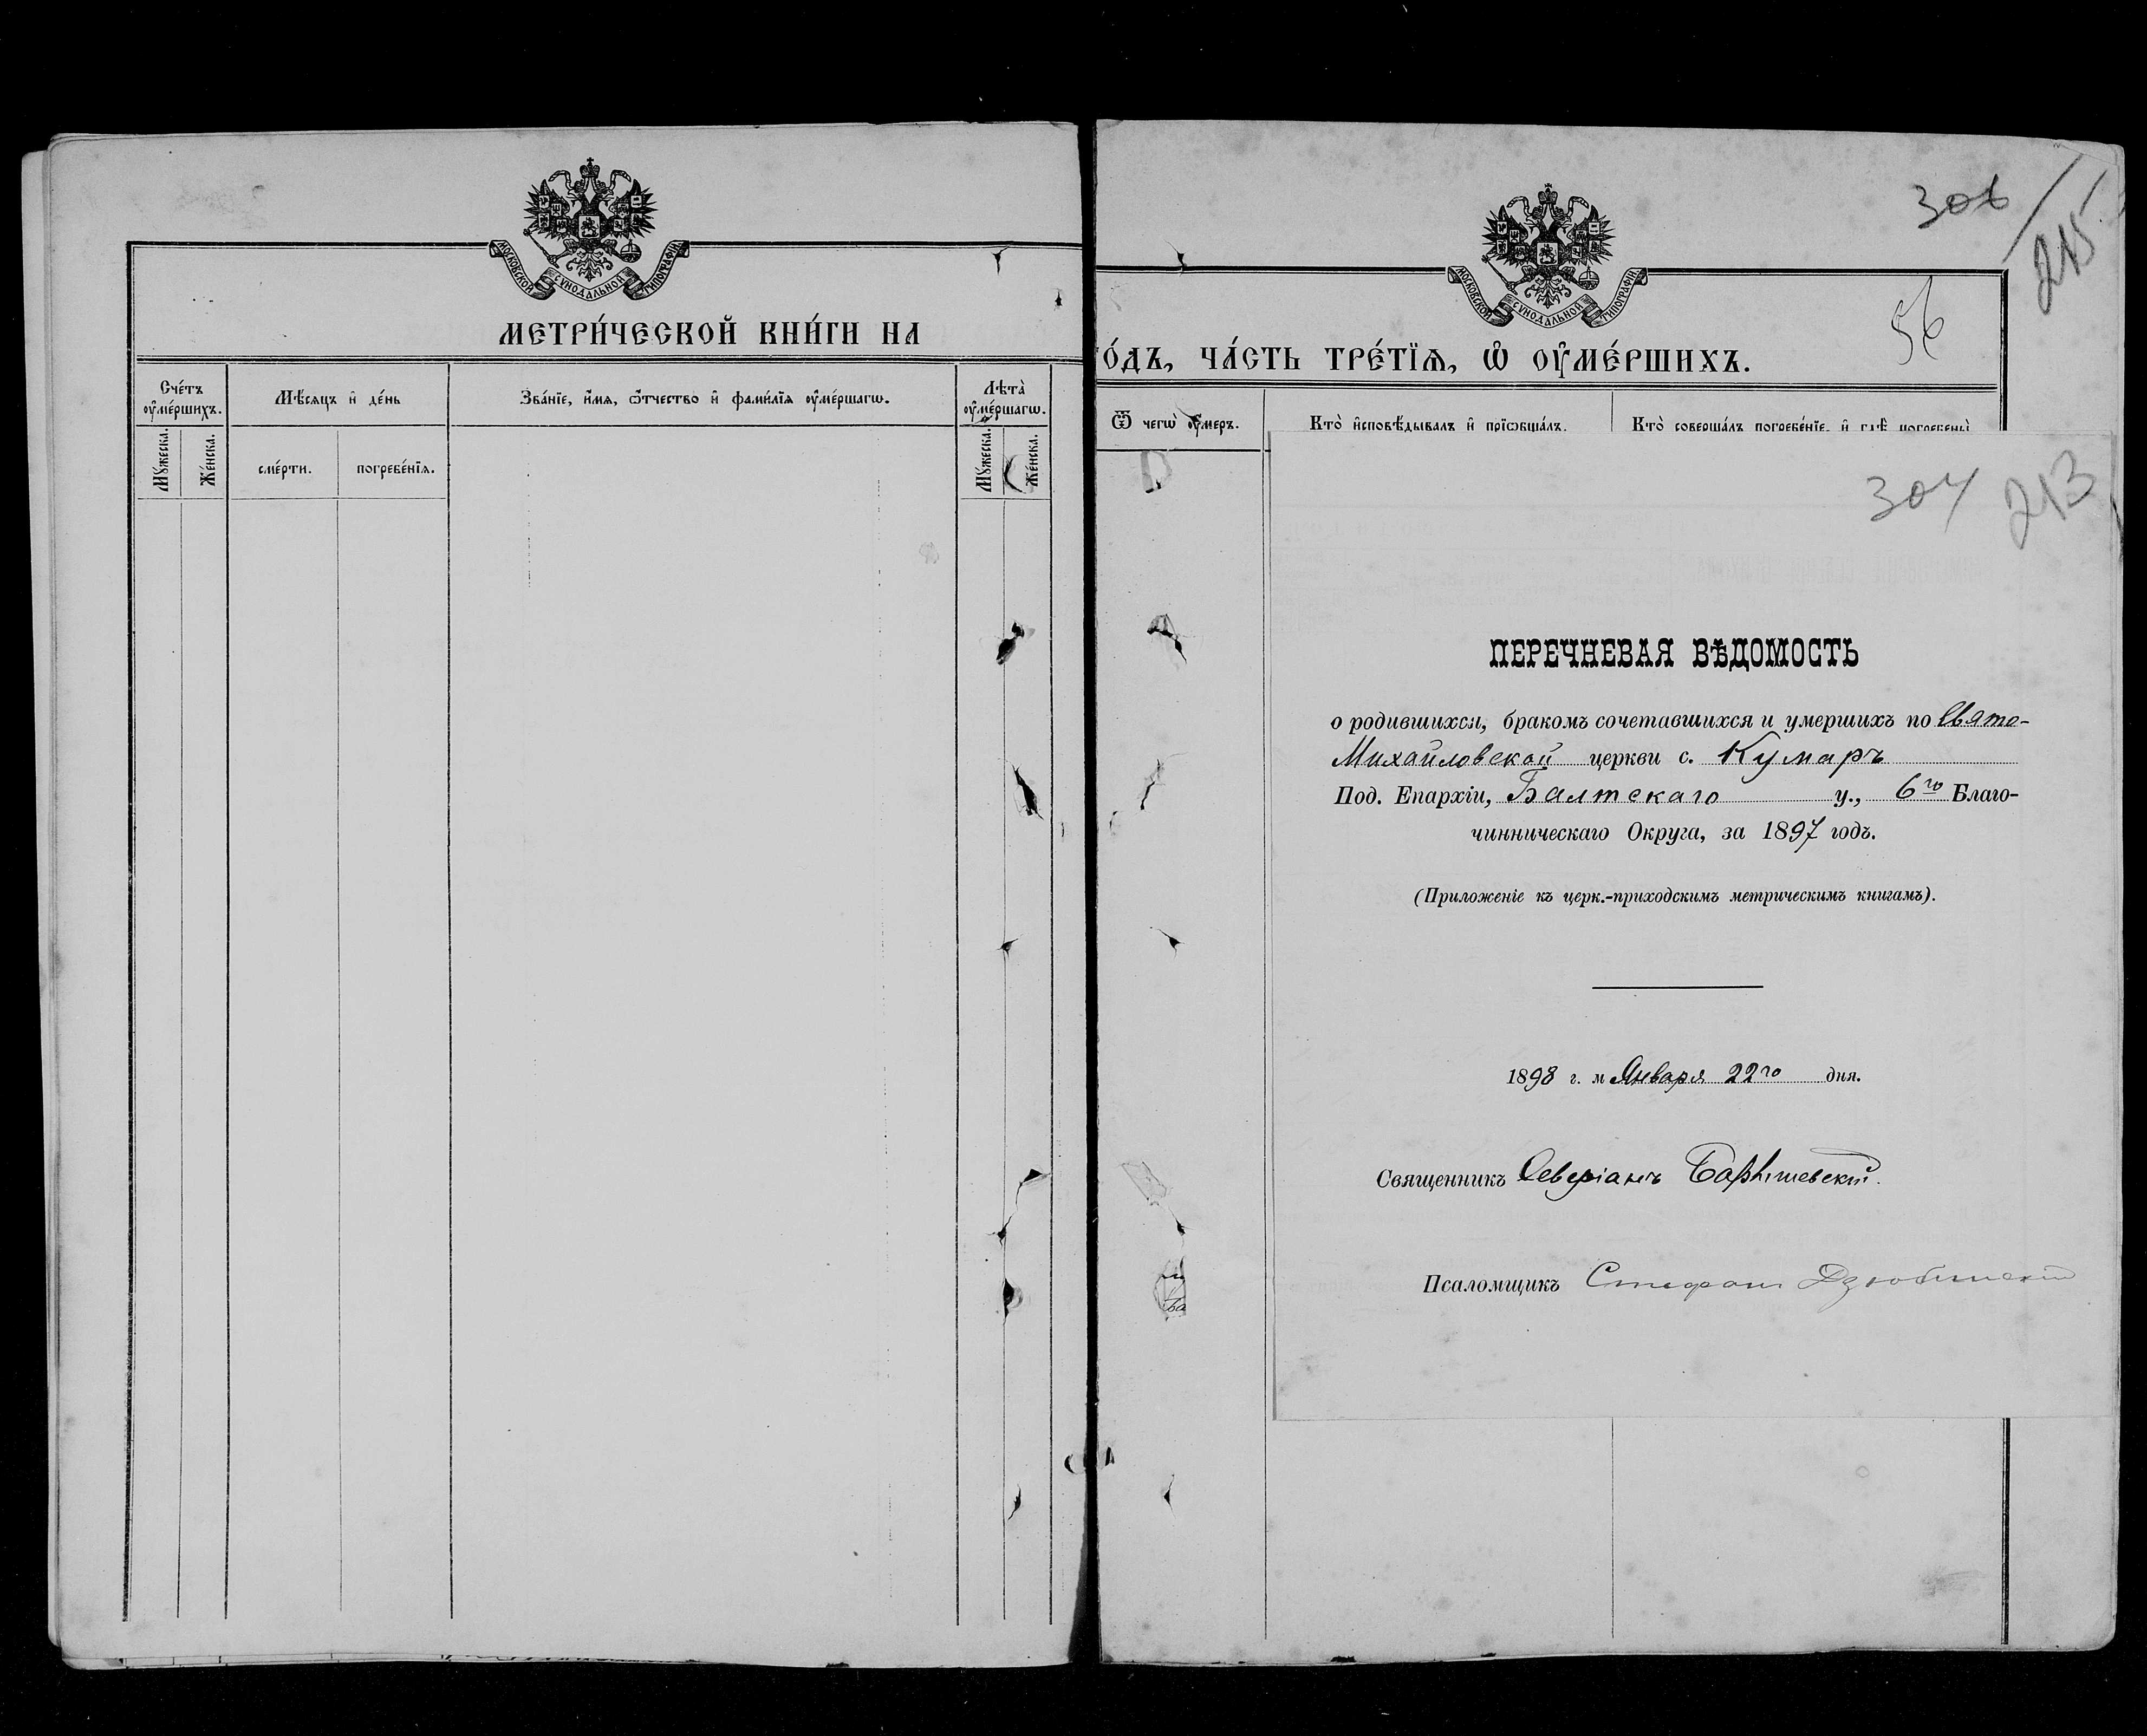 МОСКОВСКОЙ СУНОДАЛЬНОЙ ТИПОГРАФІИ
МЕТРИ́ЧЕСКОЙ КНИ́ГИ НА
Сче́тъ оу҆ме́ршихъ.
Мѣ́сяцъ и҆ де́нь
Зва́нїе, и҆́мя, ѻ҆́тчество и҆ фами́лїя оу҆ме́ршагѡ.
Лѣта̀ оу҆ме́ршагѡ.
Мꙋ́жеска.
Же́нска.
сме́рти.
погребе́нїя.
Мꙋ́жеска.
Же́нска.
306
215
МОСКОВСКОЙ СУНОДАЛЬНОЙ ТИПОГРАФІИ
56
го́дъ, ча́сть тре́тїѧ, ѡ҆ оу҆ме́ршихъ.
Ѿ чегѡ̀ оу҆́меръ.
Кто̀ и҆сповѣ́дывалъ и҆ прїѡбща́лъ.
Кто̀ соверша́лъ погребе́нїе, и҆ гдѣ̀ погребены̀
304 213
ПЕРЕЧНЕВАЯ ВѢДОМОСТЬ
о родившихся, бракомъ сочетавшихся и умершихъ по Свято-
Михайловской церкви с. Кумаръ
Под. Епархіи, Балтскаго у., 6го Благо-
чинническаго Округа, за 1897 годъ.
(Приложеніе къ церк.-приходскимъ метрическимъ книгамъ).
1898 г. м Января 22го дня.
Священникъ Северіанъ
Псаломщикъ Стефанъ Дзюбинскій